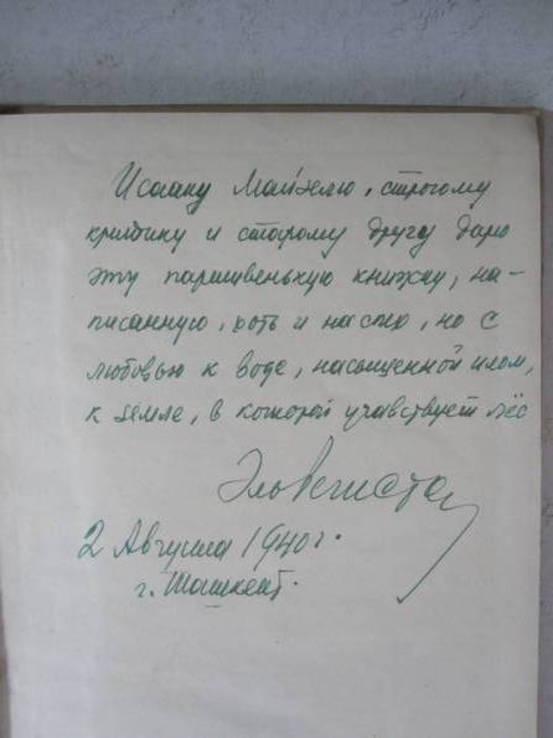 Исааку Майзелю, строгому
критику и старому другу дарю
эту паршивенькую книжку, на-
писанную, хоть и наспех, но с
любовью к воде, насыщенной илом,
к земле, в которой учавствует лёс
Эль Регистан
2 Августа 1940 г.
г. Ташкент.